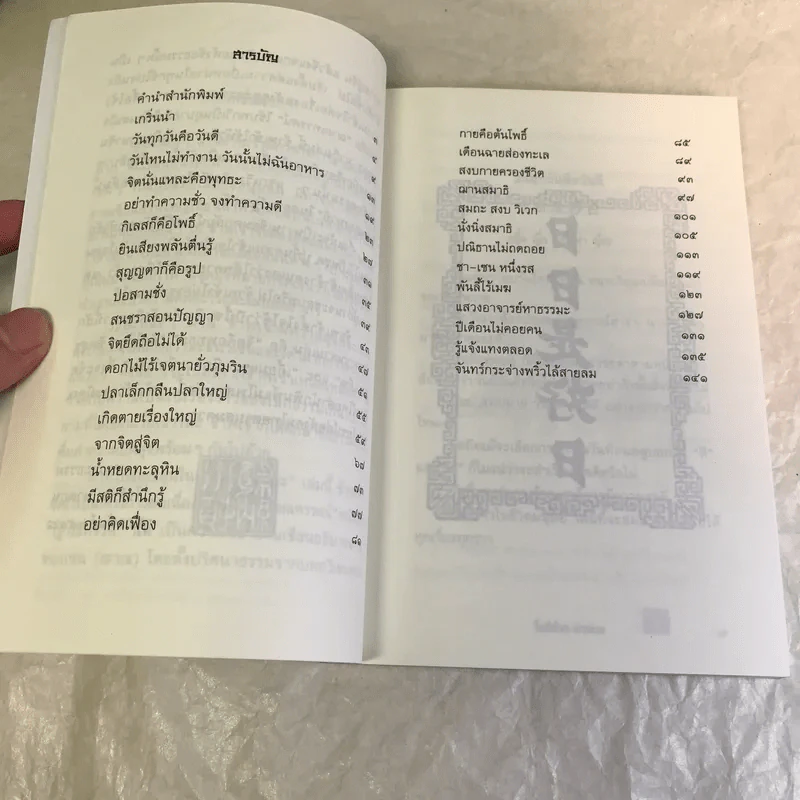 สารบัญ
คำนำสำนักพิมพ์ ๓
เกริ่นนำ ๔
วันทุกวันคือวันดี ๙
วันไหนไม่ทำงาน วันนั้นไม่ฉันอาหาร ๑๓
จิตนั่นแหละคือพุทธะ ๑๙
อย่าทำความชั่ว จงทำความดี ๒๓
กิเลสก็คือโพธิ์ ๒๘
ยินเสียงพลันตื่นรู้ ๓๑
สุญญตาก็คือรูป ๓๕
ปอสามชั่ง ๓๙
สนชราสอนปัญญา ๔๓
จิตยึดถือไม่ได้ ๔๗
ดอกไม้ไร้เจตนายั่วภุมริน ๕๑
ปลาเล็กกลืนปลาใหญ่ ๕๕
เกิดตายเรื่องใหญ่ ๕๙
จากจิตสู่จิต ๖๗
น้ำหยดทะลุหิน ๗๓
มีสติก็สำนึกรู้ ๗๗
อย่าคิดเฟื่อง ๘๑
กายคือต้นโพธิ์ ๘๕
เดือนฉายส่องทะเล ๘๙
สงบกายครองชีวิต ๙๓
ฌานสมาธิ ๙๗
สมถะ สงบ วิเวก ๑๐๑
นั่งนิ่งสมาธิ ๑๐๕
ปณิธานไม่ถดถอย ๑๑๓
ชา-เซน หนึ่งรส ๑๑๙
พันลี้ไร้เมฆ ๑๒๓
แสวงอาจารย์หาธรรมะ ๑๒๗
ปีเดือนไม่คอยคน ๑๓๑
รู้แจ้งแทงตลอด ๑๓๕
จันทร์กระจ่างพริ้วไล้สายลม ๑๔๑